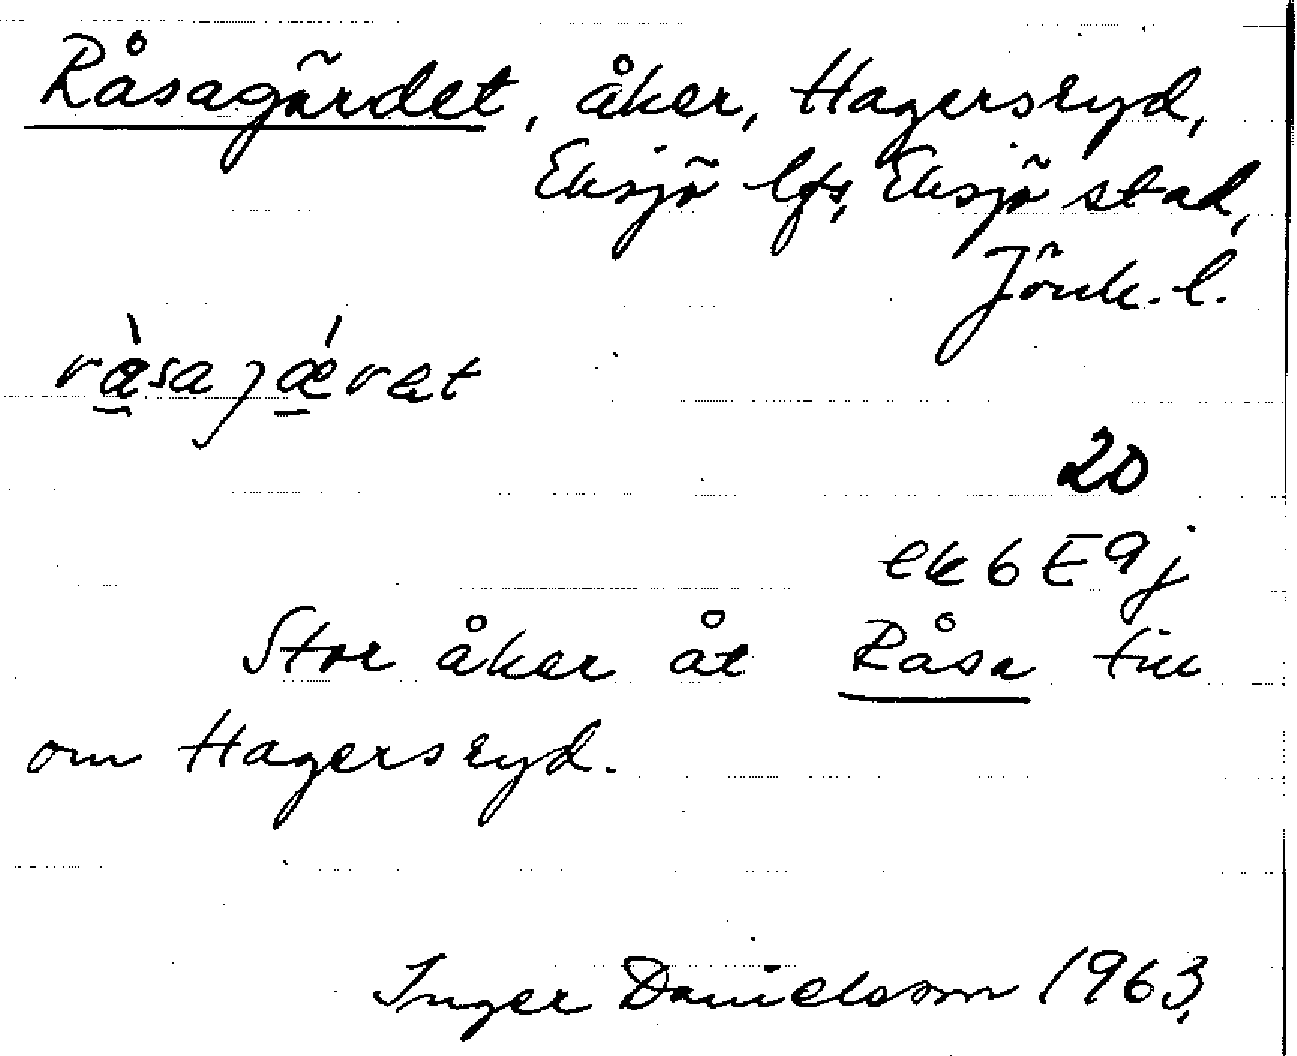 Råsagärdet, åker, Hagersryd,
Eksjö lfs, Eksjö stad,
Jönk. l.
rå̀sajǽrat
20
ek 6 E 9 j
Stor åker åt Råsa till
om Hagersryd.
Inger Danielsson 1963.